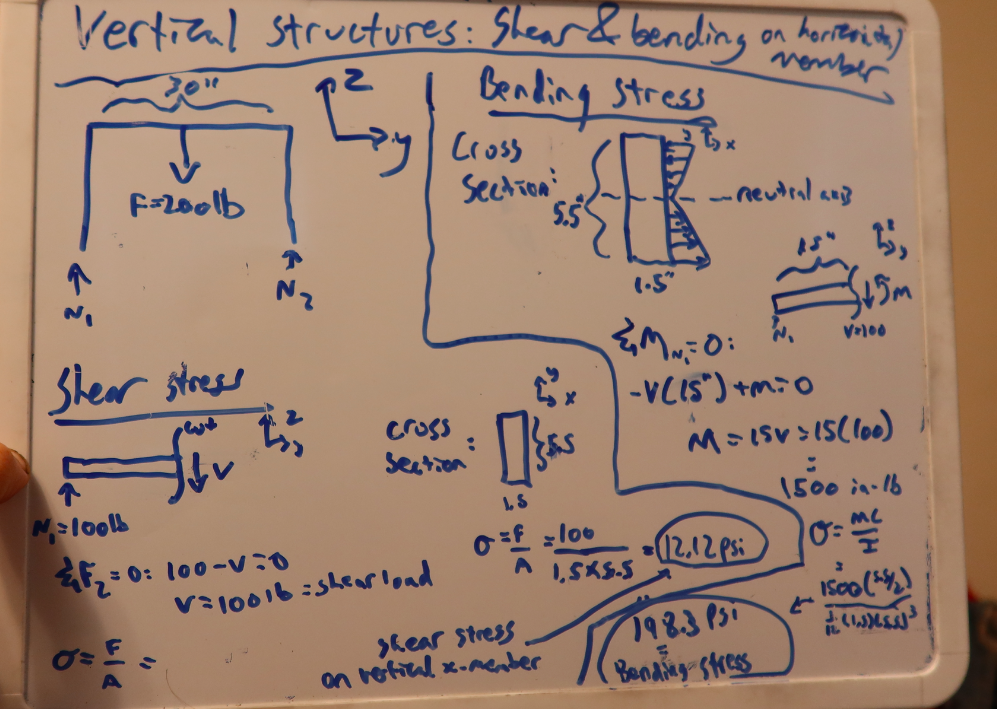 Vertical structures: Shear & bending on horizontal member
30"
Z
y
F=200lb
N1
N2
Bending stress
Cross section:
5.5"
1.5"
x
neutral axis
15"
z
y
M
N1
V=100
ΣM N1=0:
-V(15")+m=0
M = 15V = 15(100)
=
1500 in-lb
σ= MC/I
= 1500(5.5/2)
1/12 (1.5)(5.5)³
198.3 PSi
=
Bending stress
Shear stress
cut
z
y
V
N1=100lb
ΣFz=0: 100-V=0
V=100lb = shear load
σ= F/A =
cross section:
y
x
5.5
1.5
σ= F/A = 100/1.5×5.5 = 12.12psi
shear stress
on vertical x-member